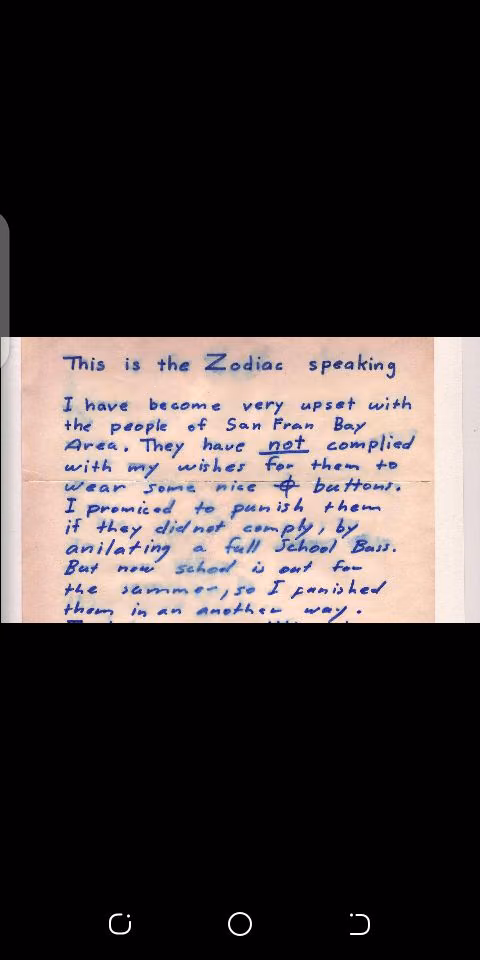 This is the Zodiac speaking
I have become very upset with
the people of San Fran Bay
Area. They have not complied
with my wishes for them to
wear some nice ⌖ buttons.
I promiced to punish them
if they did not comply, by
anilating a full School Buss.
But now school is out for
the summer, so I punished
them in an another way.